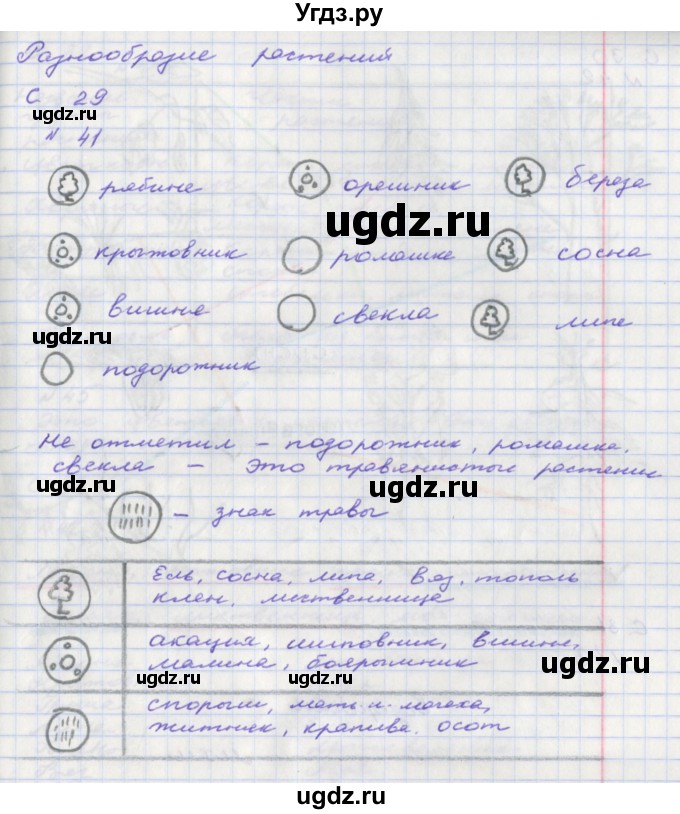 Угдз.ру
Разнообразие растений
С. 29
ugdz.ru
№ 41
рябина орешник береза
ugdz.ru
крыжовник ромашка сосна
вишня свекла липа
ugdz.ru
подорожник
Не отметил - подорожник, ромашка,
свекла - это травянистый растения
ugdz.ru ugdz.ru
- знак травы
Ель, сосна, липа, Вяз, тополь
клен, лиственница
акация, шиповник, вишня,
малина, боярышник
ugdz.ru
ugdz.ru ugdz.ru
спорыш, мать-и-мачеха,
житняк, крапива, осот
ugdz.ru